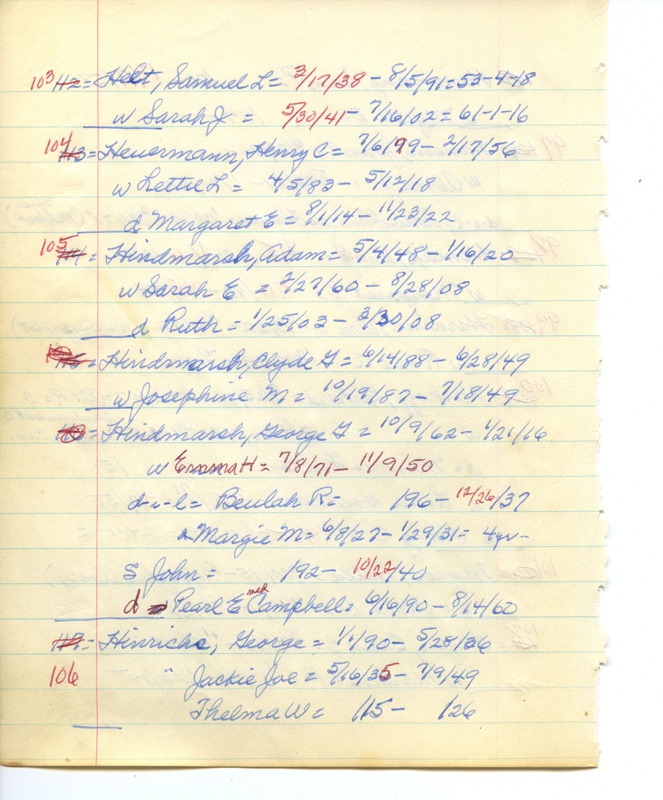 103 112 = Helt, Samuel L = 3/17/38 - 8/5/91 = 53-4-18
w Sarah J = 5/30/41 - 7/16/02 = 61-1-16
104 113 = Heuermann, Henry C = 7/6/99 - 2/17/56
w Lettie L = 4/5/83 - 5/12/18
d Margaret E = 8/1/14 - 11/23/22
105 = Hindmarsh, Adam = 5/4/48 - 1/16/20
w Sarah E = 2/27/60 - 8/28/08
d Ruth = 1/25/03 - 3/30/08
= Hindmarsh, Clyde G = 6/14/88 - 6/28/49
w Josephine M = 10/19/87 - 7/18/49
= Hindmarsh, George G = 10/9/62 - 1/21/16
w Emma H = 7/8/71 - 11/9/50
d-i-l = Beulah R = 196 - 12/26/37
Margie M = 6/8/27 - 1/29/31 = 4yr -
S John = 192 - 10/22/40
d Pearl E Campbell = 6/16/90 - 8/14/60
= Hinrichs, George = 1/1/90 - 5/28/36
106 " Jackie Joe = 5/16/35 - 7/9/49
Thelma W = 115 - 126